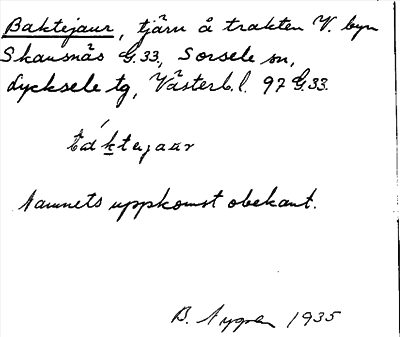 Baktejaur, tjärn å trakten V. byn
Skansnäs G.33, Sorsele sn,
Lycksele tg, Västerb. l. 97 G.33.
Namnets uppkomst obekant.
B. Nygren 1935